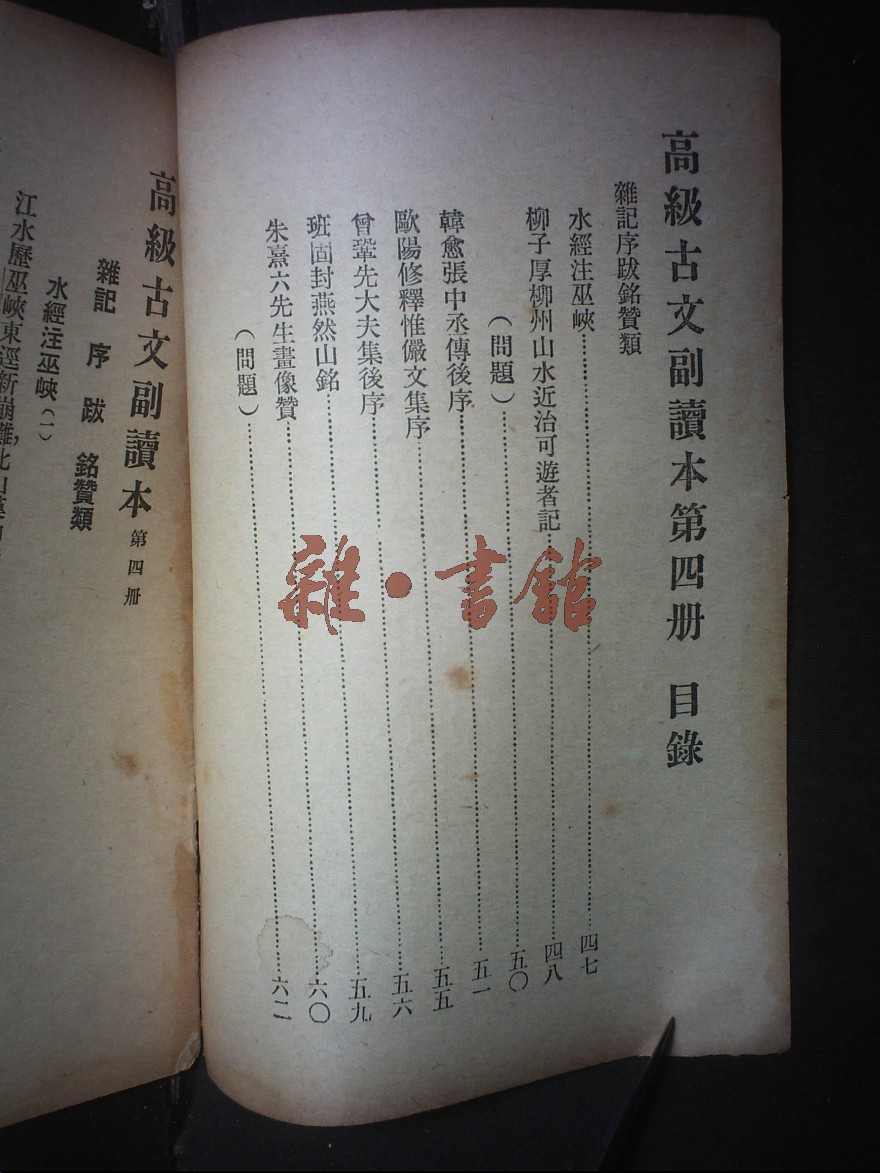 高級古文副讀本第四册 目錄
雜記序跋銘贊類
水經注巫峽……四七
柳子厚柳州山水近治可遊者記……四八
(問題)……五〇
韓愈張中丞傳後序……五一
歐陽修釋惟儼文集序……五五
曾鞏先大夫集後序……五六
班固封燕然山銘……五九
朱熹六先生畫像贊……六〇
(問題)……六二
雜·書館
高級古文副讀本 第四册
雜記 序 跋 銘贊類
水經注巫峽(一)
江水歷巫峽東逕新崩灘,此山漢